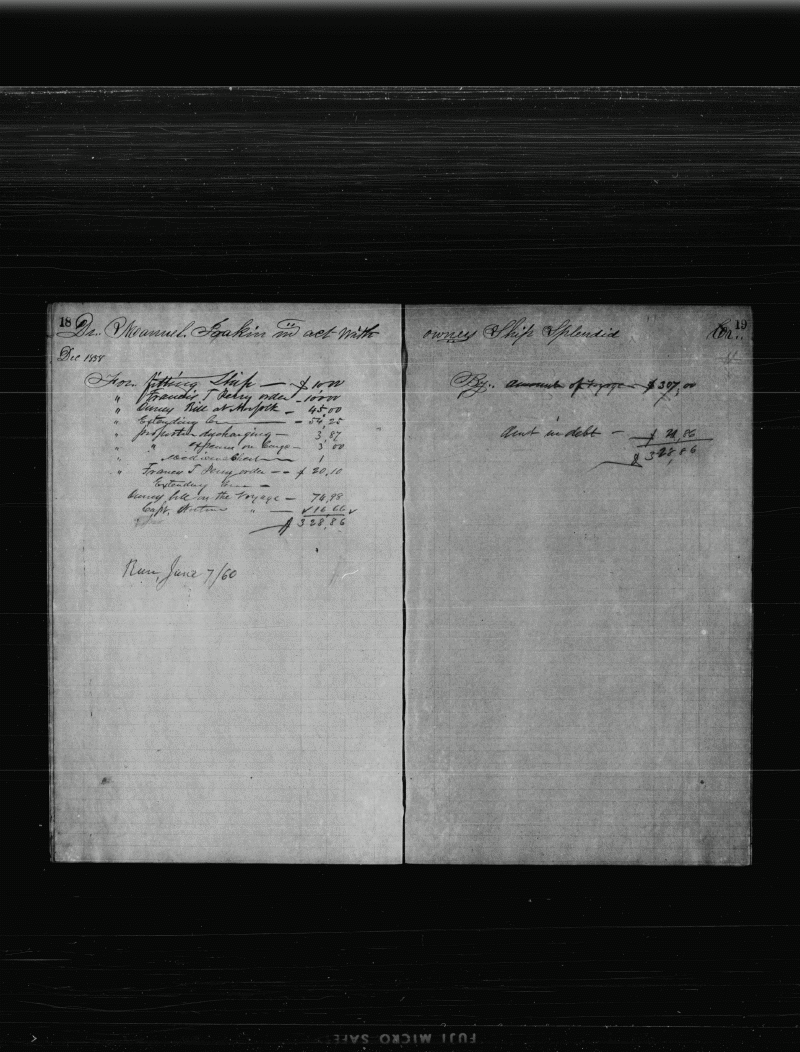 18 Dr. Manuel Joakin in act with
Dec 1858
For fitting Ship — $ 10 00
" Francis T Perry order — 100 00
" Owners Bill at Norfolk — 45,00
" Extending — 54,25
" proportion discharging — 3,87
" " expenses on Cargo — 3 00
" " Medicine Chest — 1
" Francis T Perry order — $ 20,10
Extending
Owners bill on the Voyage — 74,98
Capt. " — 16,66
$ 328,86
Run, June 7/60
owners Ship Splendid Cr. 19
By amount of voyage — $ 307,00
Amt in debt — $ 21,86
$ 328,86
FUJI MICRO SAFE